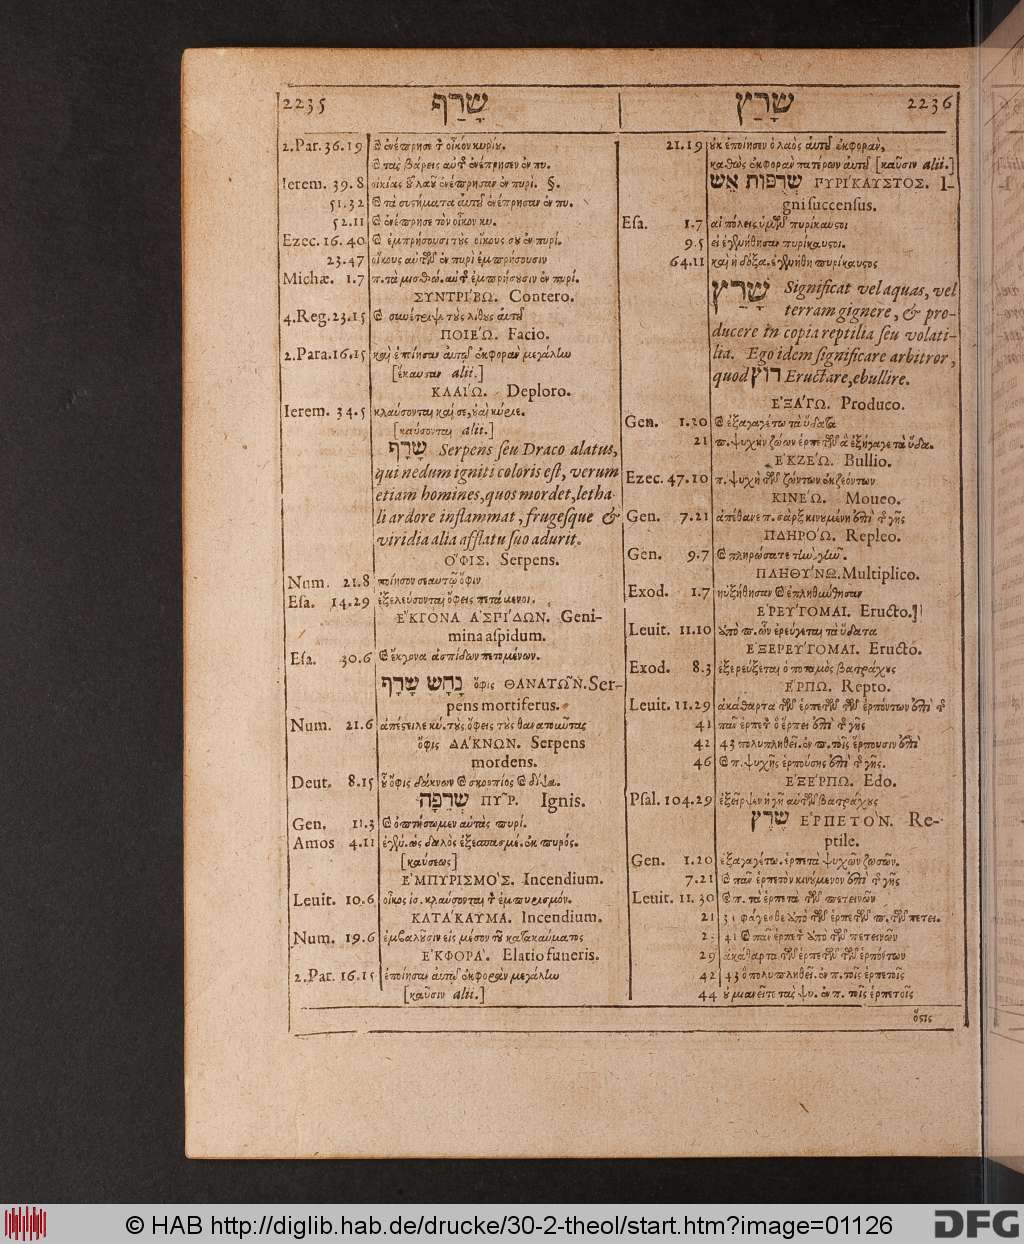 2235 שָׂרַף
2.Par. 36.19 ἐνέπρησε τ̀ οἶκον κυρίου.
τὰς βάρεις αὐτ̃ ἐνέπρησεν ἐν πυ.
Ierem. 39.8 οἰκίας τ̃ λαοῦ ἐνέπρησαν ἐν πυρί. §.
51.32 τὰ συστήματα αὐτῶν ἐνέπρησαν ἐν πυ.
52.11 ἐνέπρησε τὸν οἶκον κυ.
Ezec. 16.40 ἐμπρήσουσι τοὺς οἴκους σου ἐν πυρί.
23.47 οἴκους αὐτῶν ἐν πυρὶ ἐμπρήσουσιν
Michæ. 1.7 π. τὰ μισθώ. αὐτ̃ ἐμπρήσουσιν ἐν πυρί.
ΣΥΝΤΡΙ´ΒΩ. Contero.
4.Reg. 23.15 συνέτριψε τοὺς λίθους αὐτοῦ
ΠΟΙΕ´Ω. Facio.
2.Para. 16.15 καὶ ἐποίησαν αὐτῷ ἐκφορὰν μεγάλην
[ἔκαυσαν alii.]
ΚΛΑΙ´Ω. Deploro.
Ierem. 34.5 κλαύσονται καὶ σε, οὐαὶ κύριε.
[καύσονται alii.]
שָׂרָף Serpens seu Draco alatus,
qui nedum igniti coloris est, verum
etiam homines, quos mordet, letha-
li ardore inflammat, frugesque &
viridia alia afflatu suo adurit.
Ο῎ΦΙΣ. Serpens.
Num. 21.8 ποίησον σεαυτῷ ὄφιν
Esa. 14.29 ἐξελεύσονται ὄφεις πετάμενοι.
Ε῎ΚΓΟΝΑ Α᾿ΣΠΙ´ΔΩΝ. Geni-
mina aspidum.
Esa. 30.6 ἔκγονα ἀσπίδων πετομένων.
נָחָשׁ שָׂרָף ὄφις ΘΑΝΑΤΩ῀Ν. Ser-
pens mortiferus.
Num. 21.6 ἀπέστειλε κύ. τοὺς ὄφεις τοὺς θανατοῦντας
ὄφις ΔΑ´ΚΝΩΝ. Serpens
mordens.
Deut. 8.15 οὗ ὄφις δάκνων σκορπίος δίψα.
שְׂרֵפָה ΠΥ῀Ρ. Ignis.
Gen. 11.3 ὀπτήσωμεν αὐτὰς πυρί.
Amos 4.11 ἐγένε. ὡς δαλὸς ἐξεσπασμέ. ἐκ πυρός.
[καύσεως]
Ε᾿ΜΠΥΡΙΣΜΟ´Σ. Incendium.
Leuit. 10.6 οἶκος ἰσ. κλαύσονται τ̀ ἐμπυρισμόν.
ΚΑΤΑ´ΚΑΥΜΑ. Incendium.
Num. 19.6 ἐμβαλοῦσιν εἰς μέσον τοῦ κατακαύματος
Ε᾿ΚΦΟΡΑ´. Elatio funeris.
2.Par. 16.15 ἐποίησαν αὐτῷ ἐκφορὰν μεγάλην
[καῦσιν alii.]
שָׁרַץ 2236
21.19 οὐκ ἐποίησεν ὁ λαὸς αὐτοῦ ἐκφορὰν,
καθὼς ἐκφορὰν πατέρων αὐτοῦ [καῦσιν alii.]
שְׂרֻפוֹת אֵשׁ ΠΥΡΙ´ΚΑΥΣΤΟΣ. I-
gni succensus.
Esa. 1.7 αἱ πόλεις ὑμῶν πυρίκαυστοι
9.5 εἰ ἐγενήθησαν πυρίκαυστοι.
64.11 καὶ ἡ δόξα. ἐγενήθη πυρίκαυστος
שָׁרַץ Significat vel aquas, vel
terram gignere, & pro-
ducere in copia reptilia seu volati-
lia. Ego idem significare arbitror,
quod רוץ Eructare, ebullire.
Ε᾿ΞΑ´ΓΩ. Produco.
Gen. 1.20 ἐξαγαγέτω τὰ ὕδατα
21 π. ψυχὴν ζώων ἑρπετῶν ἃ ἐξήγαγε τὰ ὕδα.
Ε᾿ΚΖΕ´Ω. Bullio.
Ezec. 47.10 π. ψυχὴ τῶν ζώντων ἐκζεόντων
ΚΙΝΕ´Ω. Moueo.
Gen. 7.21 ἀπέθανε π. σὰρξ κινουμένη ἐπὶ τ̃ γῆς
ΠΛΗΡΟ´Ω. Repleo.
Gen. 9.7 πληρώσατε τὴν γῆν.
ΠΛΗΘΥ´ΝΩ. Multiplico.
Exod. 1.7 ηὐξήθησαν ἐπληθύνθησαν
Ε᾿ΡΕΥ´ΓΟΜΑΙ. Eructo.
Leuit. 11.10 ἀπὸ π. ὧν ἐρεύγεται τὰ ὕδατα
Ε᾿ΞΕΡΕΥ´ΓΟΜΑΙ. Eructo.
Exod. 8.3 ἐξερεύξεται ὁ ποταμὸς βατράχους
Ε῞ΡΠΩ. Repto.
Leuit. 11.29 ἀκάθαρτα τῶν ἑρπετῶν τῶν ἑρπόντων ἐπὶ τ̃
41 πᾶν ἑρπετ̀ ὃ ἕρπει ἐπὶ τ̃ γῆς
42 43 πολυπληθεῖ. ἐν π. τοῖς ἕρπουσιν ἐπὶ
46 π. ψυχῆς ἑρπούσης ἐπὶ τ̃ γῆς.
Ε᾿ΞΕ´ΡΠΩ. Edo.
Psal. 104.29 ἐξεῖρψεν ἡ γῆ αὐτῶν βατράχους
שֶׁרֶץ Ε῾ΡΠΕΤΟ`Ν. Re-
ptile.
Gen. 1.20 ἐξαγαγέτω. ἑρπετὰ ψυχῶν ζωσῶν.
7.21 πᾶν ἑρπετὸν κινούμενον ἐπὶ τ̃ γῆς
Leuit. 11.30 π. τὰ ἑρπετὰ τῶν πετεινῶν
21 31 φάγεσθε ἀπὸ τῶν ἑρπετῶν π. τῶν πετει.
41 πᾶν ἑρπετ̀ ἀπὸ τῶν πετεινῶν
29 ἀκάθαρτα τῶν ἑρπετῶν τῶν ἑρπόντων
42 43 ὃ πολυπληθεῖ. ἐν π. τοῖς ἑρπετοῖς
44 οὐ μιανεῖτε τὰς ψυ. ἐν π. τοῖς ἑρπετοῖς
ὅστις
© HAB http://diglib.hab.de/drucke/30-2-theol/start.htm?image=01126
DFG